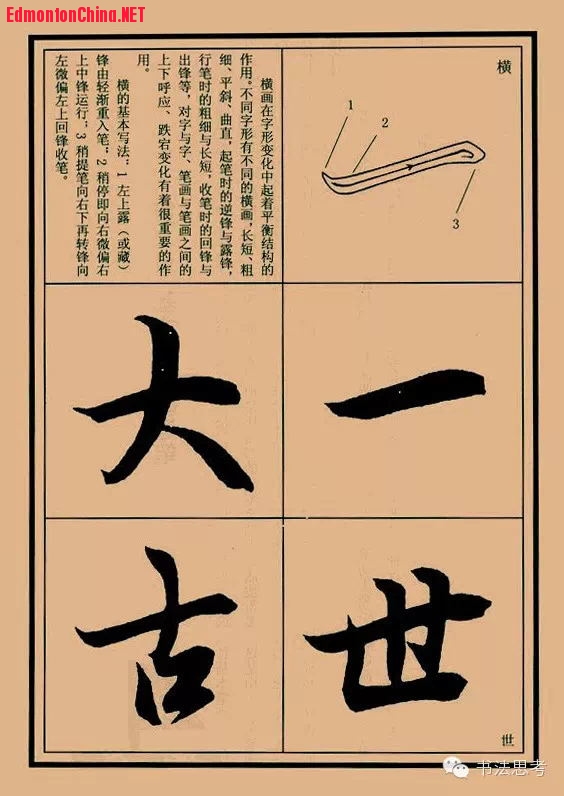 EdmontonChina.NET
横
1
2
3
横画在字形变化中起着平衡结构的
作用。不同字形有不同的横画，长短、粗
细、平斜、曲直，起笔时的逆锋与露锋，
行笔时的粗细与长短，收笔时的回锋与
出锋等，对字与字、笔画与笔画之间的
上下呼应、跌宕变化有着很重要的作
用。
横的基本写法：1 左上露（或藏）
锋由轻渐重入笔；2 稍停即向右微偏右
上中锋运行；3 稍提笔向右下再转锋向
左微偏左上回锋收笔。
一
世
大
古
世
书法思考